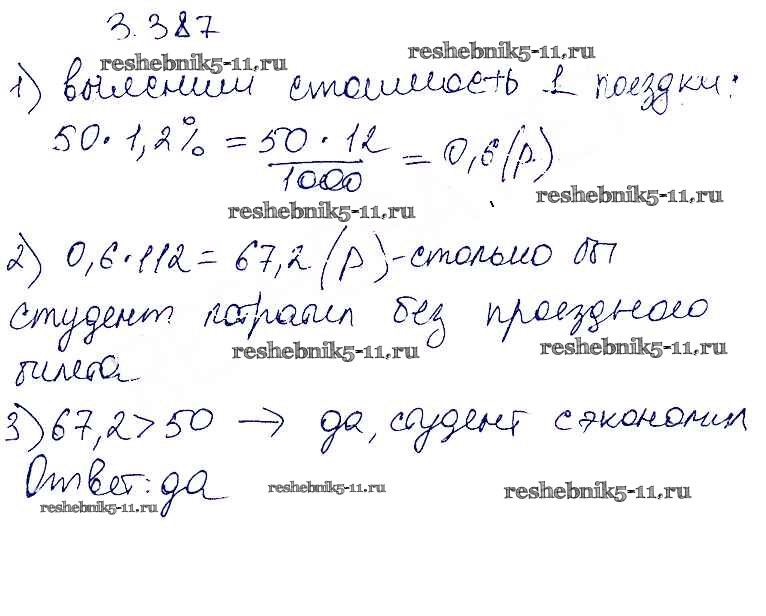 3.387
reshebnik5-11.ru
reshebnik5-11.ru
1) выясним стоимость 1 поездки:
50 · 1,2% = 50 · 12 / 1000 = 0,6 (р.)
reshebnik5-11.ru
reshebnik5-11.ru
2) 0,6 · 112 = 67,2 (р) - столько бы
студент потратил без проездного
reshebnik5-11.ru
reshebnik5-11.ru
билета
3) 67,2 > 50 → да, студент сэкономил
Ответ: да
reshebnik5-11.ru
reshebnik5-11.ru
reshebnik5-11.ru